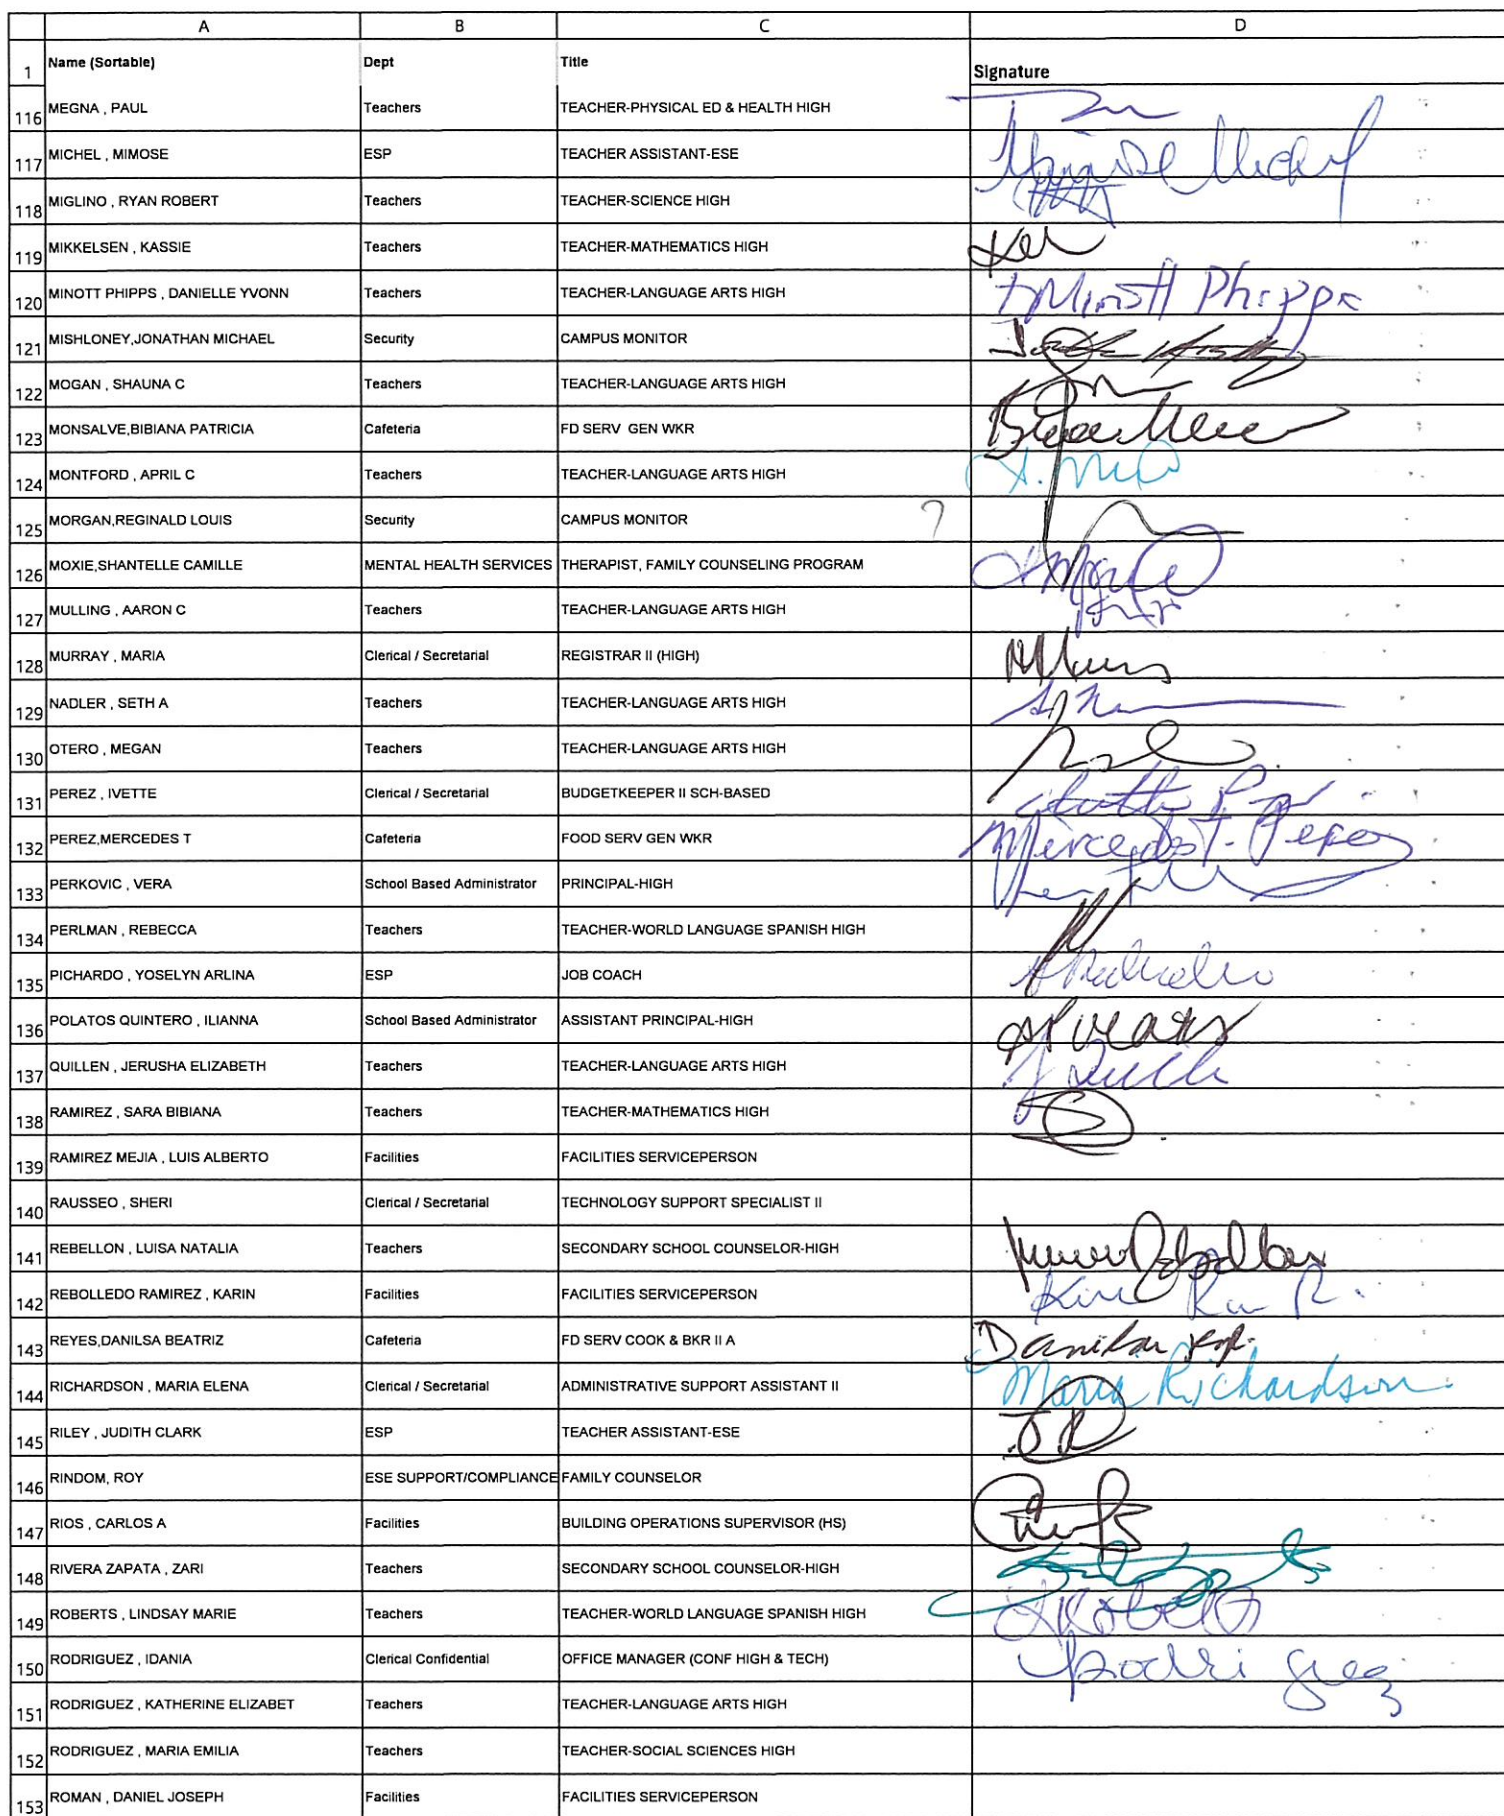 A B C D
1 Name (Sortable) Dept Title Signature
116 MEGNA , PAUL Teachers TEACHER-PHYSICAL ED & HEALTH HIGH
117 MICHEL , MIMOSE ESP TEACHER ASSISTANT-ESE Mimose Michel
118 MIGLINO , RYAN ROBERT Teachers TEACHER-SCIENCE HIGH
119 MIKKELSEN , KASSIE Teachers TEACHER-MATHEMATICS HIGH
120 MINOTT PHIPPS , DANIELLE YVONN Teachers TEACHER-LANGUAGE ARTS HIGH DMinott Phipps
121 MISHLONEY,JONATHAN MICHAEL Security CAMPUS MONITOR
122 MOGAN , SHAUNA C Teachers TEACHER-LANGUAGE ARTS HIGH
123 MONSALVE,BIBIANA PATRICIA Cafeteria FD SERV GEN WKR
124 MONTFORD , APRIL C Teachers TEACHER-LANGUAGE ARTS HIGH
125 MORGAN,REGINALD LOUIS Security CAMPUS MONITOR ?
126 MOXIE,SHANTELLE CAMILLE MENTAL HEALTH SERVICES THERAPIST, FAMILY COUNSELING PROGRAM
127 MULLING , AARON C Teachers TEACHER-LANGUAGE ARTS HIGH
128 MURRAY , MARIA Clerical / Secretarial REGISTRAR II (HIGH)
129 NADLER , SETH A Teachers TEACHER-LANGUAGE ARTS HIGH
130 OTERO , MEGAN Teachers TEACHER-LANGUAGE ARTS HIGH
131 PEREZ , IVETTE Clerical / Secretarial BUDGETKEEPER II SCH-BASED
132 PEREZ,MERCEDES T Cafeteria FOOD SERV GEN WKR Mercedes T. Perez
133 PERKOVIC , VERA School Based Administrator PRINCIPAL-HIGH
134 PERLMAN , REBECCA Teachers TEACHER-WORLD LANGUAGE SPANISH HIGH
135 PICHARDO , YOSELYN ARLINA ESP JOB COACH
136 POLATOS QUINTERO , ILIANNA School Based Administrator ASSISTANT PRINCIPAL-HIGH
137 QUILLEN , JERUSHA ELIZABETH Teachers TEACHER-LANGUAGE ARTS HIGH
138 RAMIREZ , SARA BIBIANA Teachers TEACHER-MATHEMATICS HIGH
139 RAMIREZ MEJIA , LUIS ALBERTO Facilities FACILITIES SERVICEPERSON
140 RAUSSEO , SHERI Clerical / Secretarial TECHNOLOGY SUPPORT SPECIALIST II
141 REBELLON , LUISA NATALIA Teachers SECONDARY SCHOOL COUNSELOR-HIGH
142 REBOLLEDO RAMIREZ , KARIN Facilities FACILITIES SERVICEPERSON
143 REYES,DANILSA BEATRIZ Cafeteria FD SERV COOK & BKR II A Danilsa
144 RICHARDSON , MARIA ELENA Clerical / Secretarial ADMINISTRATIVE SUPPORT ASSISTANT II Maria Richardson
145 RILEY , JUDITH CLARK ESP TEACHER ASSISTANT-ESE JR
146 RINDOM, ROY ESE SUPPORT/COMPLIANCE FAMILY COUNSELOR
147 RIOS , CARLOS A Facilities BUILDING OPERATIONS SUPERVISOR (HS)
148 RIVERA ZAPATA , ZARI Teachers SECONDARY SCHOOL COUNSELOR-HIGH
149 ROBERTS , LINDSAY MARIE Teachers TEACHER-WORLD LANGUAGE SPANISH HIGH
150 RODRIGUEZ , IDANIA Clerical Confidential OFFICE MANAGER (CONF HIGH & TECH) Rodriguez
151 RODRIGUEZ , KATHERINE ELIZABET Teachers TEACHER-LANGUAGE ARTS HIGH
152 RODRIGUEZ , MARIA EMILIA Teachers TEACHER-SOCIAL SCIENCES HIGH
153 ROMAN , DANIEL JOSEPH Facilities FACILITIES SERVICEPERSON